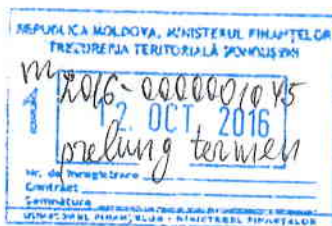 REPUBLICA MOLDOVA, MINISTERUL FINANȚELOR
TREZORERIA TERITORIALĂ
m 2016-0000001045
1
12. OCT. 2016
prelung termen
Nr. de înregistrare
Contract
Semnătura
MINISTERUL FINANȚELOR